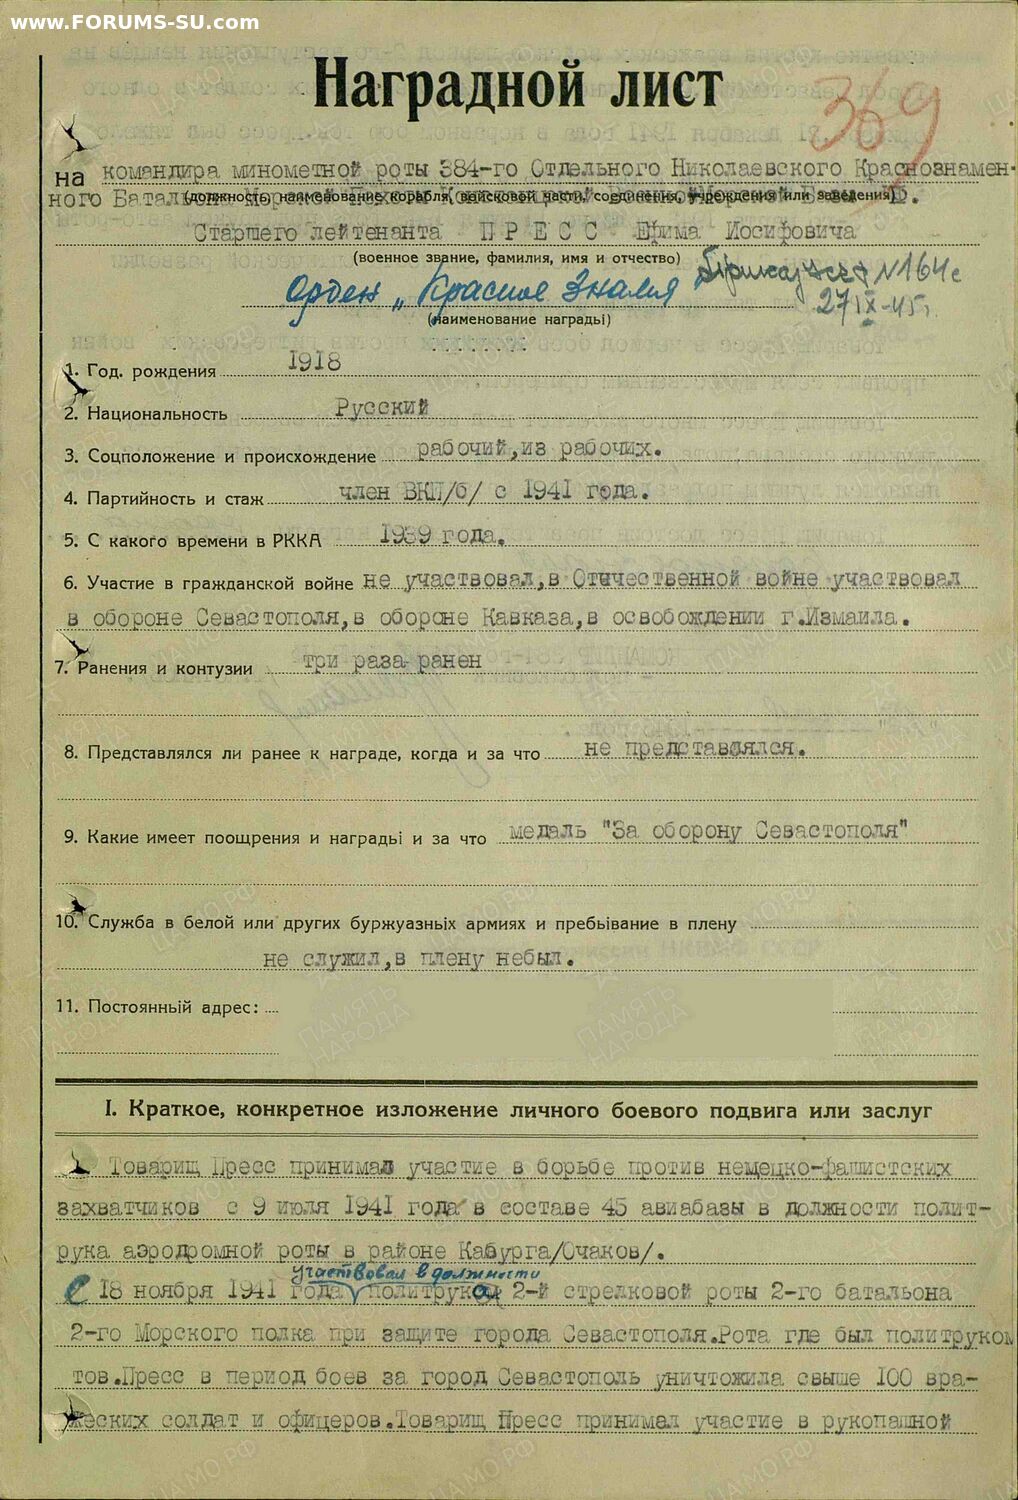 www.FORUMS-SU.com
Наградной лист
369
на командира минометной роты 384-го Отдельного Николаевского Краснознамен-
ного Батальона Морской Пехоты
(должность, наименование корабля, войсковой части, соединения, учреждения или заведения)
Старшего лейтенанта ПРЕСС Ефима Иосифовича
(военное звание, фамилия, имя и отчество)
Орден „Красное Знамя
№164с
27/IX-45г.
(наименование награды)
1. Год. рождения 1918
2. Национальность Русский
3. Соцположение и происхождение рабочий,из рабочих.
4. Партийность и стаж член ВКП/б/ с 1941 года.
5. С какого времени в РККА 1939 года.
6. Участие в гражданской войне не участвовал,в Отичественной войне участвовал
в обороне Севастополя,в обороне Кавказа,в освобождении г.Измаила.
7. Ранения и контузии три раза ранен
8. Представлялся ли ранее к награде, когда и за что не представлялся.
9. Какие имеет поощрения и награды и за что медаль "За оборону Севастополя"
10. Служба в белой или других буржуазных армиях и пребывание в плену
не служил,в плену небыл.
11. Постоянный адрес:
I. Краткое, конкретное изложение личного боевого подвига или заслуг
Товарищ Пресс принимал участие в борьбе против немецко-фашистских
захватчиков с 9 июля 1941 года в составе 45 авиабазы в должности полит-
рука аэродромной роты в районе Кабурга/Очаков/.
участвовал в должности
С 18 ноября 1941 года политрука 2-й стрелковой роты 2-го батальона
2-го Морского полка при защите города Севастополя.Рота где был политруком
тов.Пресс в период боев за город Севастополь уничтожила свыше 100 вра-
жеских солдат и офицеров.Товарищ Пресс принимал участие в рукопашной